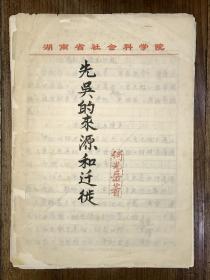 湖南省社会科学院
先吳的来源和迁徙
何光岳著